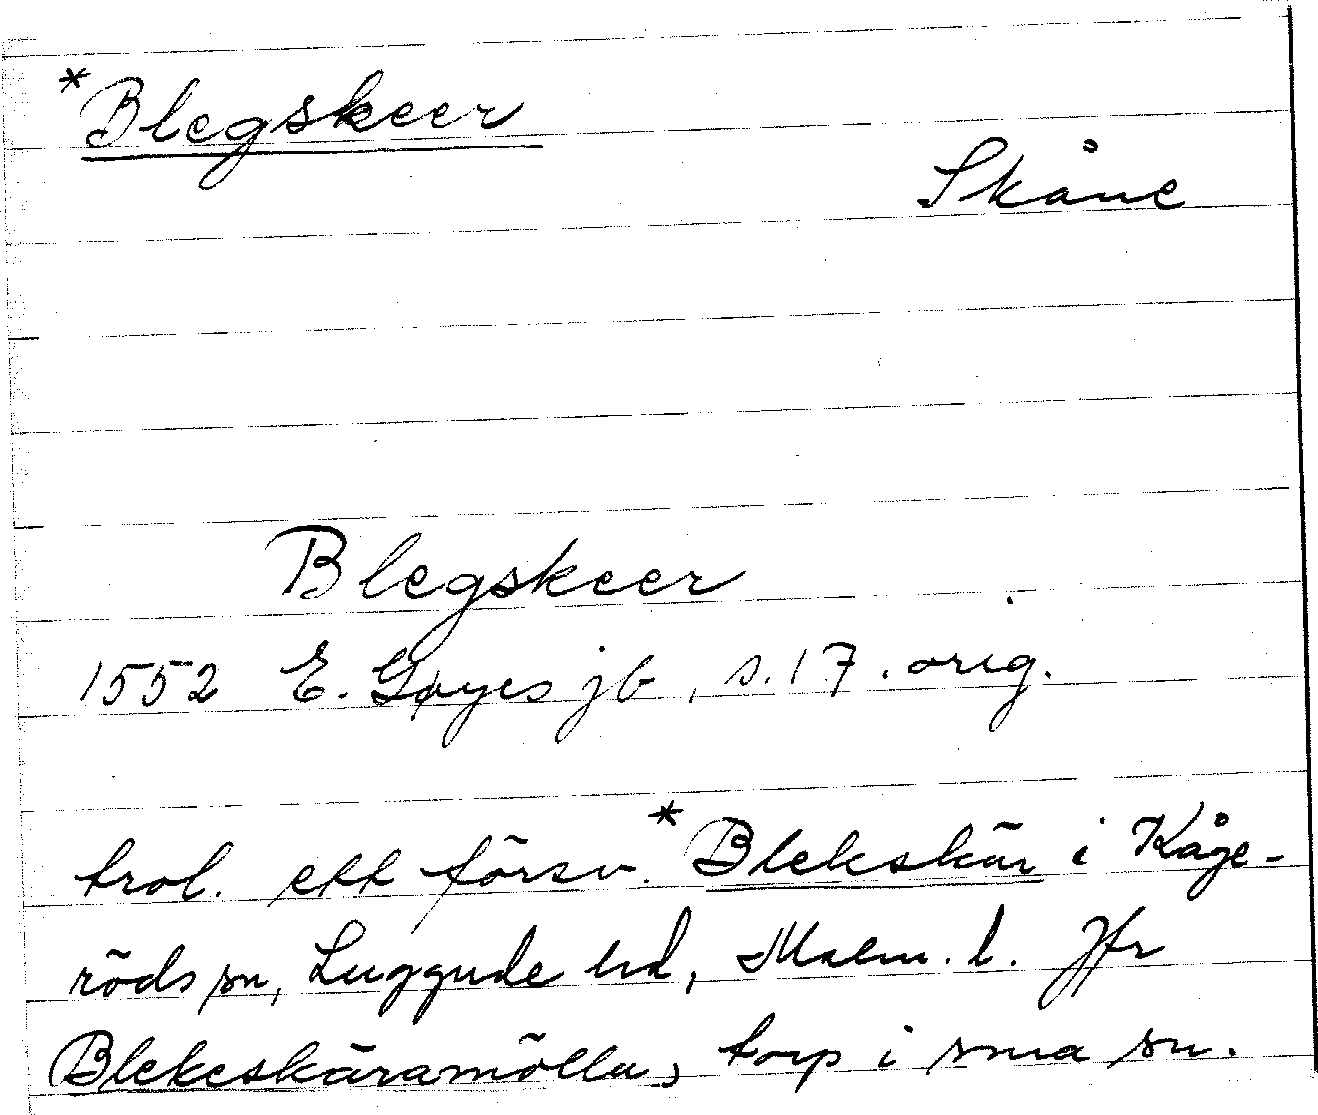 *Blegskeer
Skåne
Blegskeer
1552 E. Gøyes jb, s. 17. orig.
trol. ett försv. *Blekskär i Kåge-
röds sn, Luggude hd, Malm. l. Jfr
Blekeskäramölla, torp i sma sn.